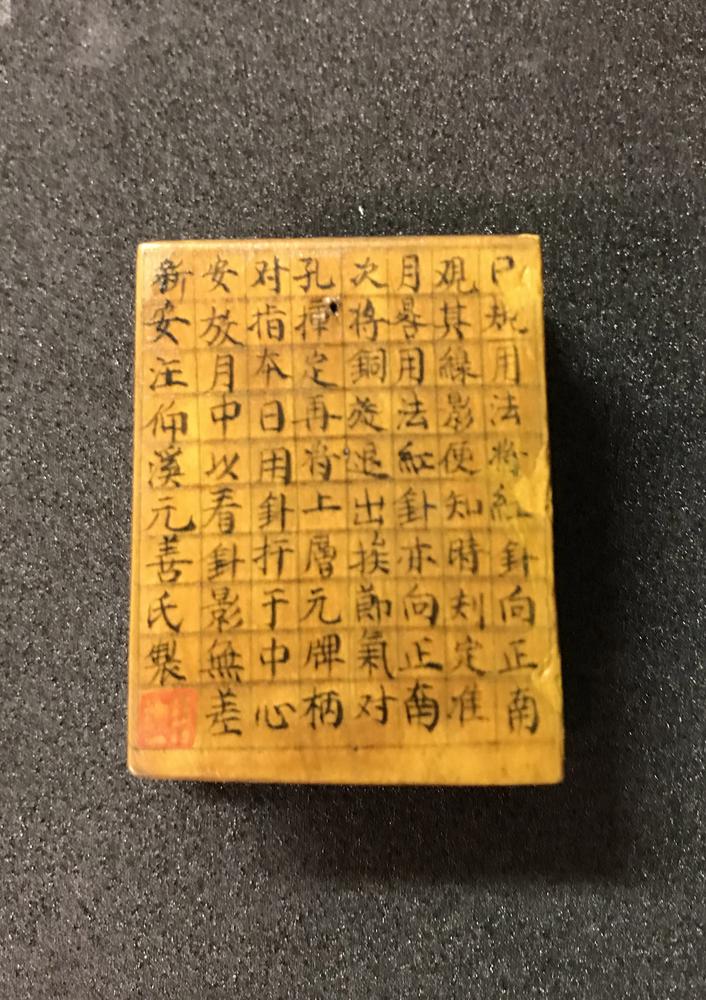 日規用法将紅針向正南
观其線影便知時刻定准
月晷用法紅針亦向正南
次将銅退出挨節氣对
孔揷定再将上層元牌柄
对指本日用針折于中心
安放月中以看針影無差
新安汪仰溪元善氏製